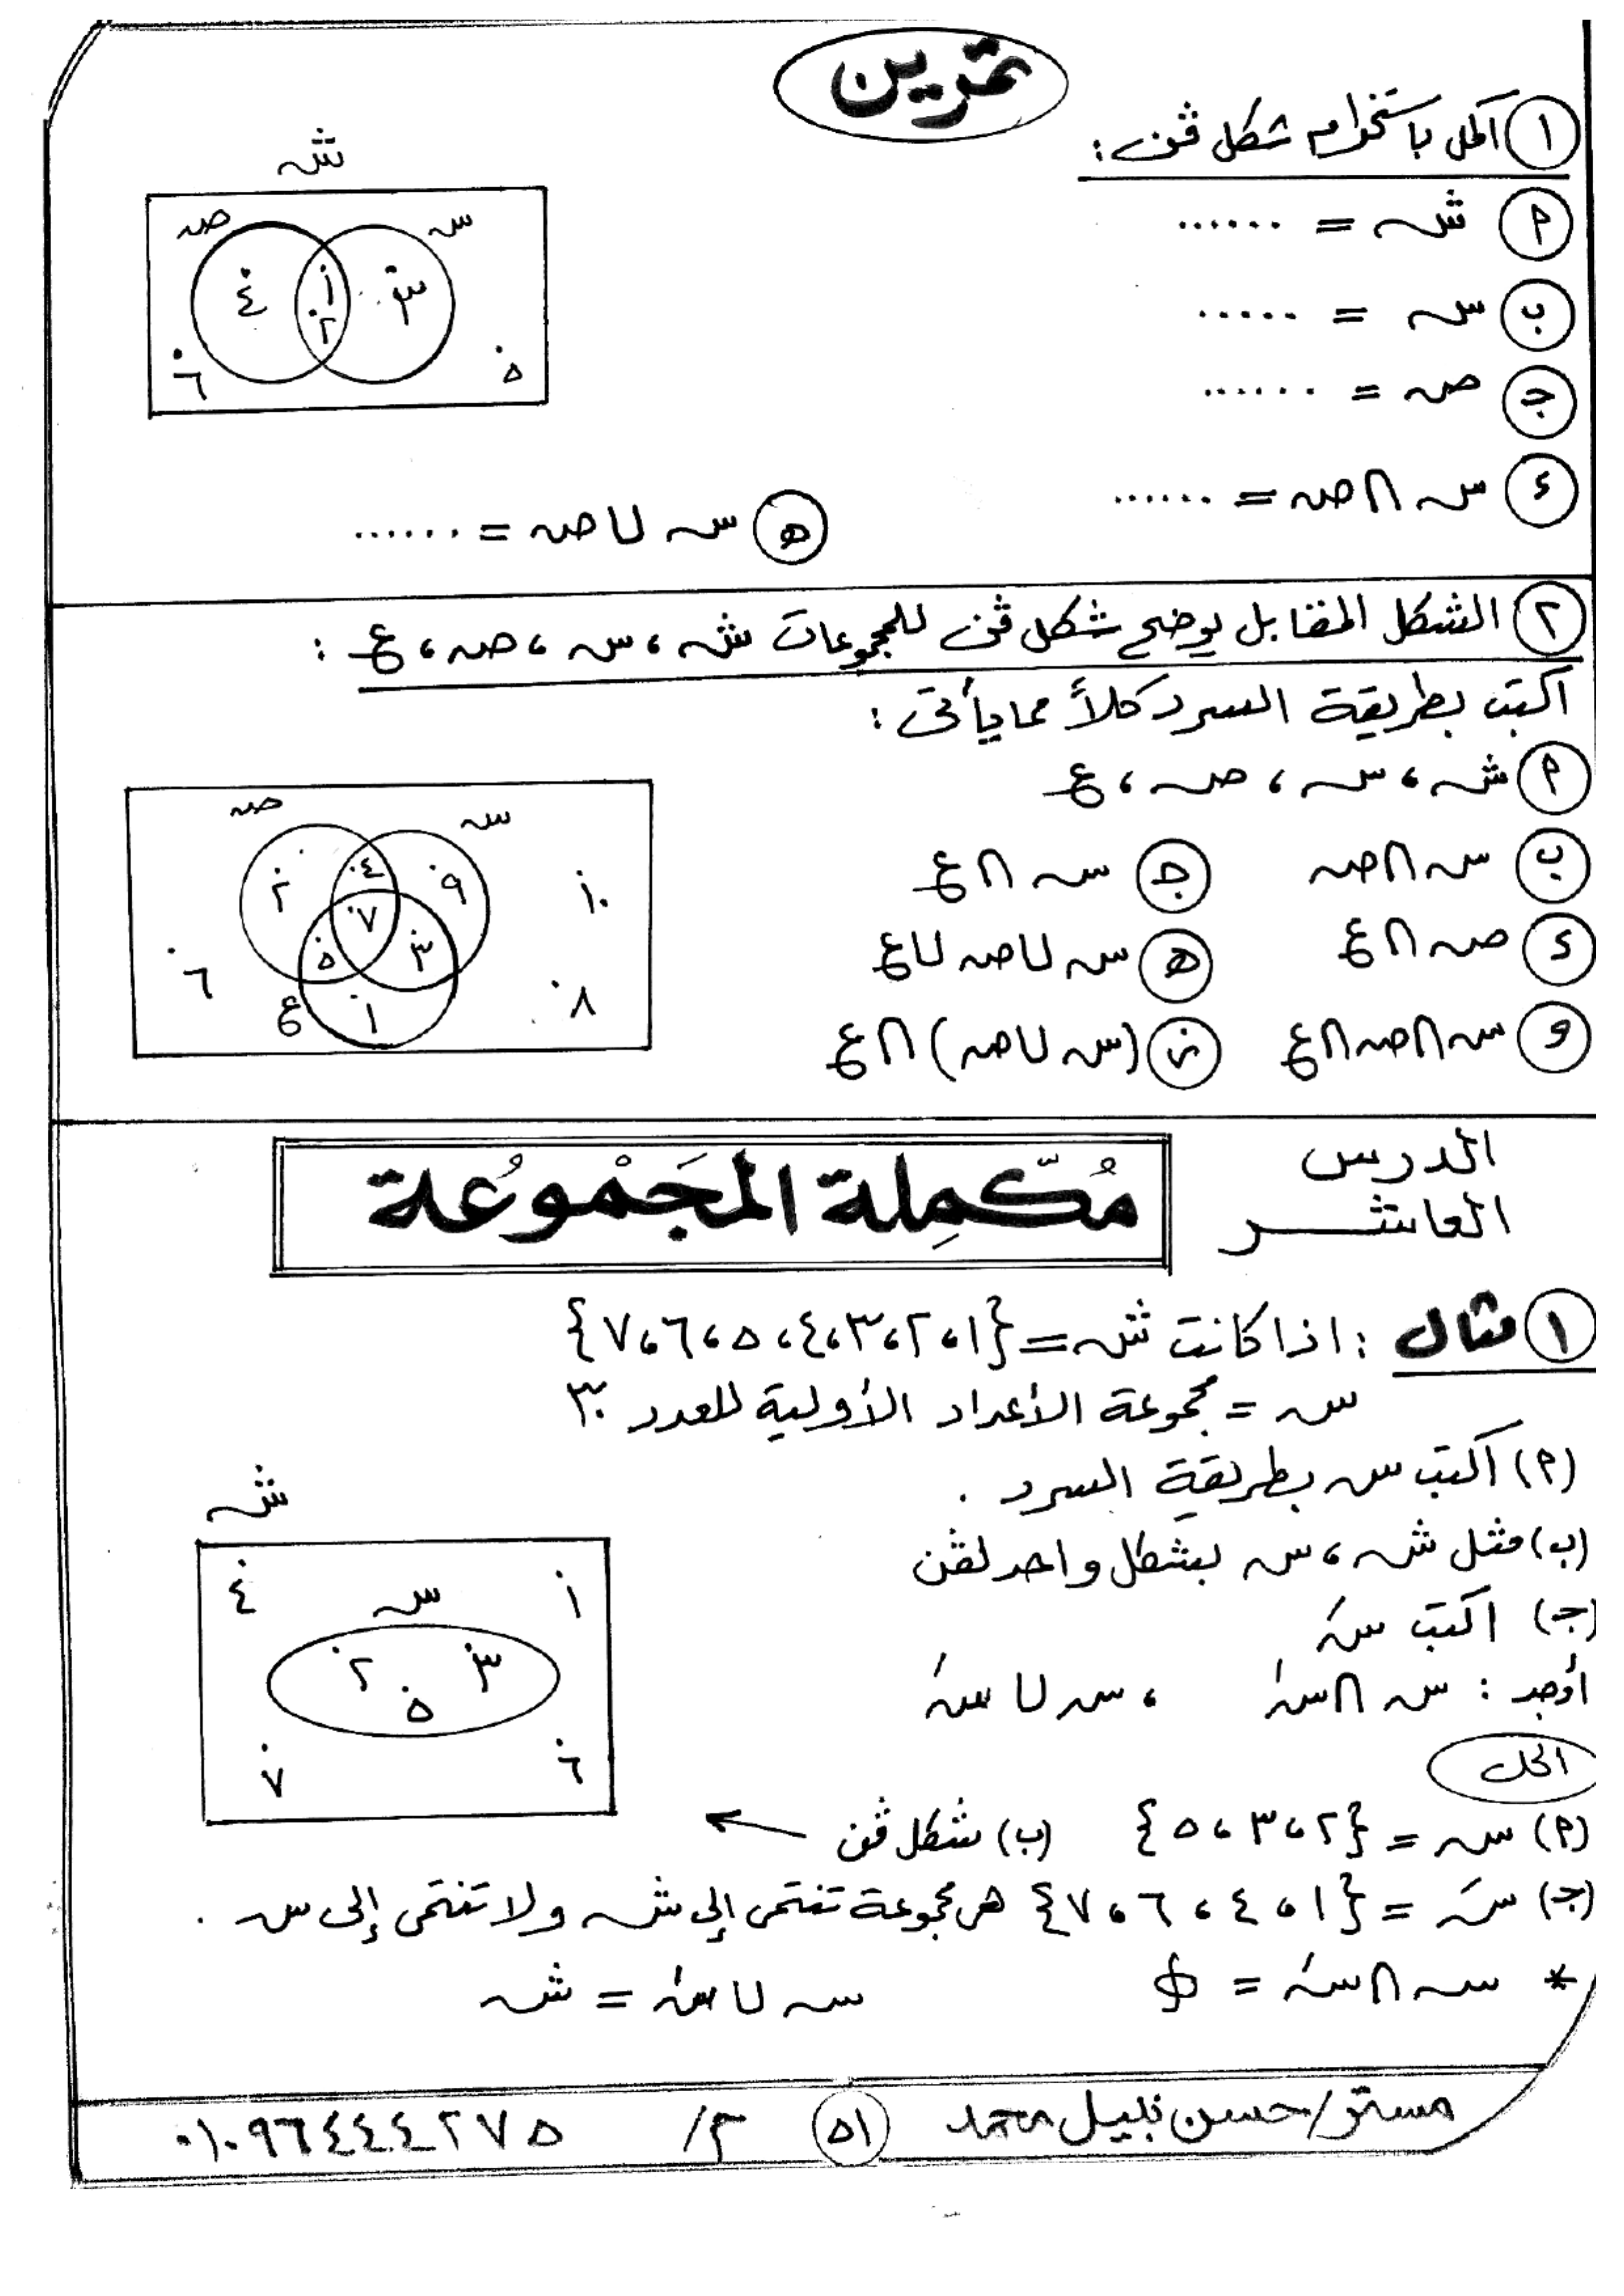 تمرين
١ أكمل باستخدام شكل ڤن :
ش
م ش = ......
ب س = .....
ج ص = ......
ء س ∩ ص = ......
هـ س ∪ ص = ......
ص س
٤ ١ ٣
٢
٦ ٥
٢ الشكل المقابل يوضح شكل ڤن للمجموعات ش ، س ، ص ، ع :
أكتب بطريقة السرد كلاً مما يأتى :
م ش ، س ، ص ، ع
ب س ∩ ص ج س ∩ ع
ء ص ∩ ع هـ س ∪ ص ∪ ع
و س ∩ ص ∩ ع ز (س ∪ ص) ∩ ع
ص س
٢ ٤ ٩ ١٠
٧
٥ ٣
٦ ٨
ع ١
الدرس
العاشر
مُكمِّلة المَجْمُوعة
١ مثال : اذا كانت ش = {١ ، ٢ ، ٣ ، ٤ ، ٥ ، ٦ ، ٧}
س = مجموعة الأعداد الأولية للعدد ٣٠
(م) أكتب س بطريقة السرد .
(ب) مثل ش ، س بشكل واحد لڤن
(جـ) اكتب سَ
أوجد : س ∩ سَ ، س ∪ سَ
ش
٤ س ١
٢ ٣
٥
٧ ٦
الحل
(م) س = {٢ ، ٣ ، ٥} (ب) شكل ڤن ←
(جـ) سَ = {١ ، ٤ ، ٦ ، ٧} هى مجموعة تنتمى إلى ش ولا تنتمى إلى س .
* س ∩ سَ = ∅ س ∪ سَ = ش
مستر/حسن نبيل محمد ٥١ م/ ٠١٠٩٦٤٤٤٢٧٥